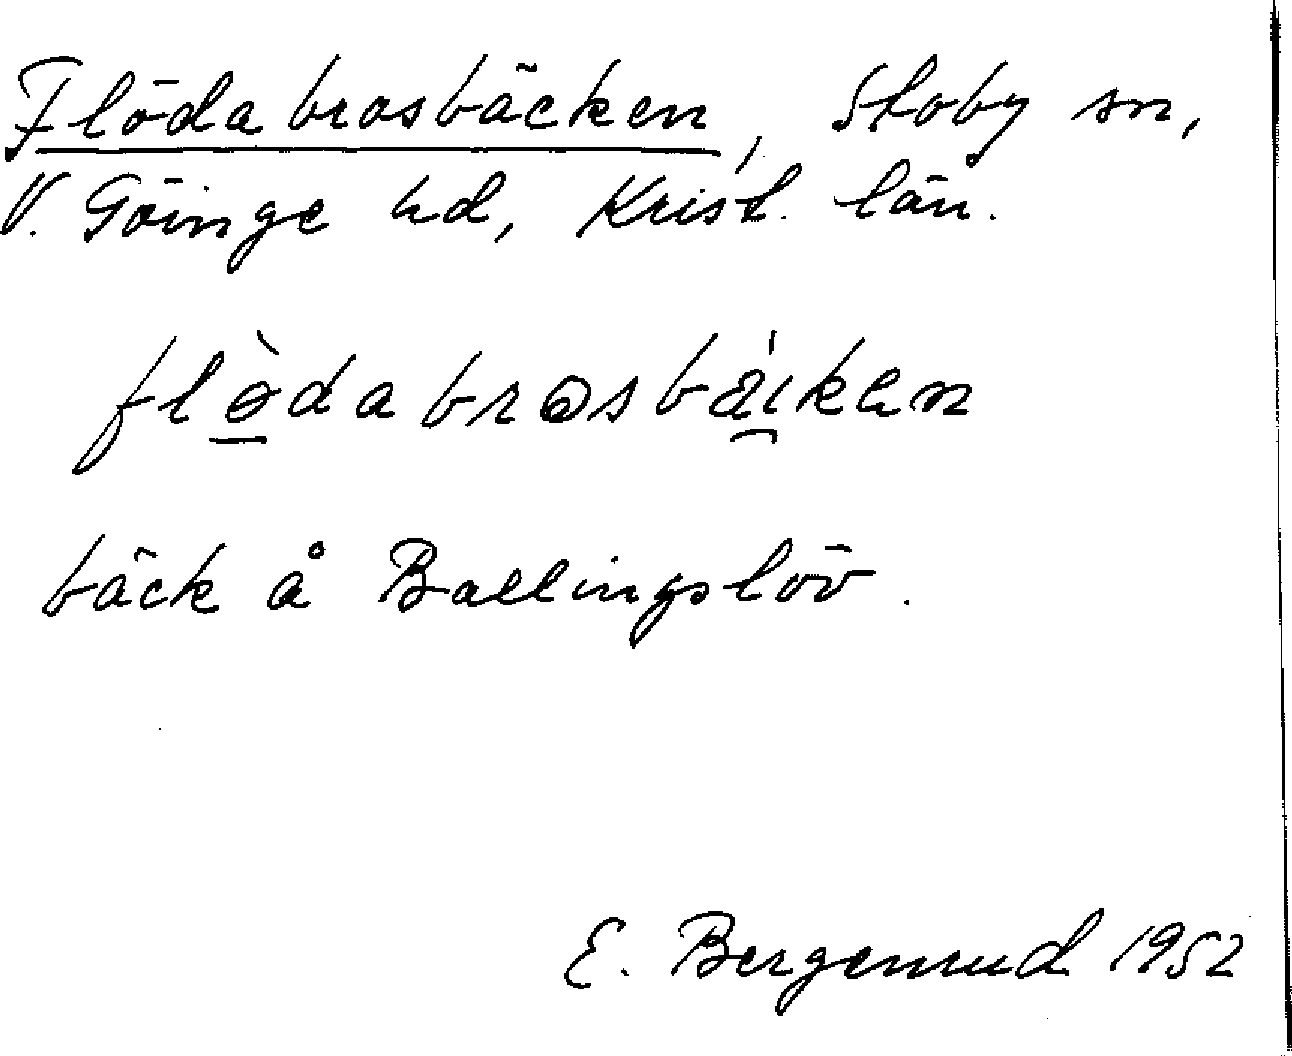 Flödabrosbäcken, Stoby sn,
V. Göinge hd, Krist. län.
flø̀dabrosbáiken
bäck å Ballingslöv.
E. Bergenrud 1952